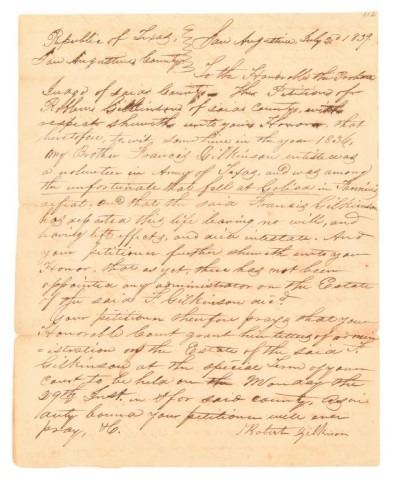 Republic of Texas, San Augustine July 2d 1839
San Augustine County
To the Honorable the Probate
Judge of said County The Petition of
Gilkinson of said County, with
respect sheweth unto your Honor, that
heretofore, to wit, sometime in the year 1836,
my Brother Francis Gilkinson intestate was
a volunteer in Army of Texas, and was among
the unfortunate that fell at Goliad in Fannin's
defeat. And that the said Francis Gilkinson
has departed this life leaving no will, and
having left effects, and died intestate. And
your petitioner further sheweth unto your
Honor, that as yet, there has not been
appointed any administrator on the Estate
of the said F. Gilkinson decd.
Your petitioner therefore prays that your
Honorable Court grant him letters of admin
istration on the Estate of the said F.
Gilkinson at the special Term of your
Court to be held on the Monday the
29th Inst. in & for said county, as in
duty bound your petitioner will ever
pray, &C.
Robert Gilkinson